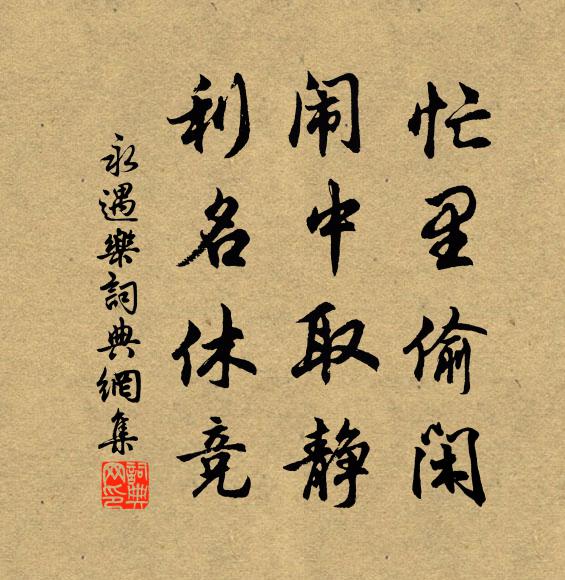 忙里偷闲
闹中取静
利名休竞
永遇樂詞典網集
詞典网印